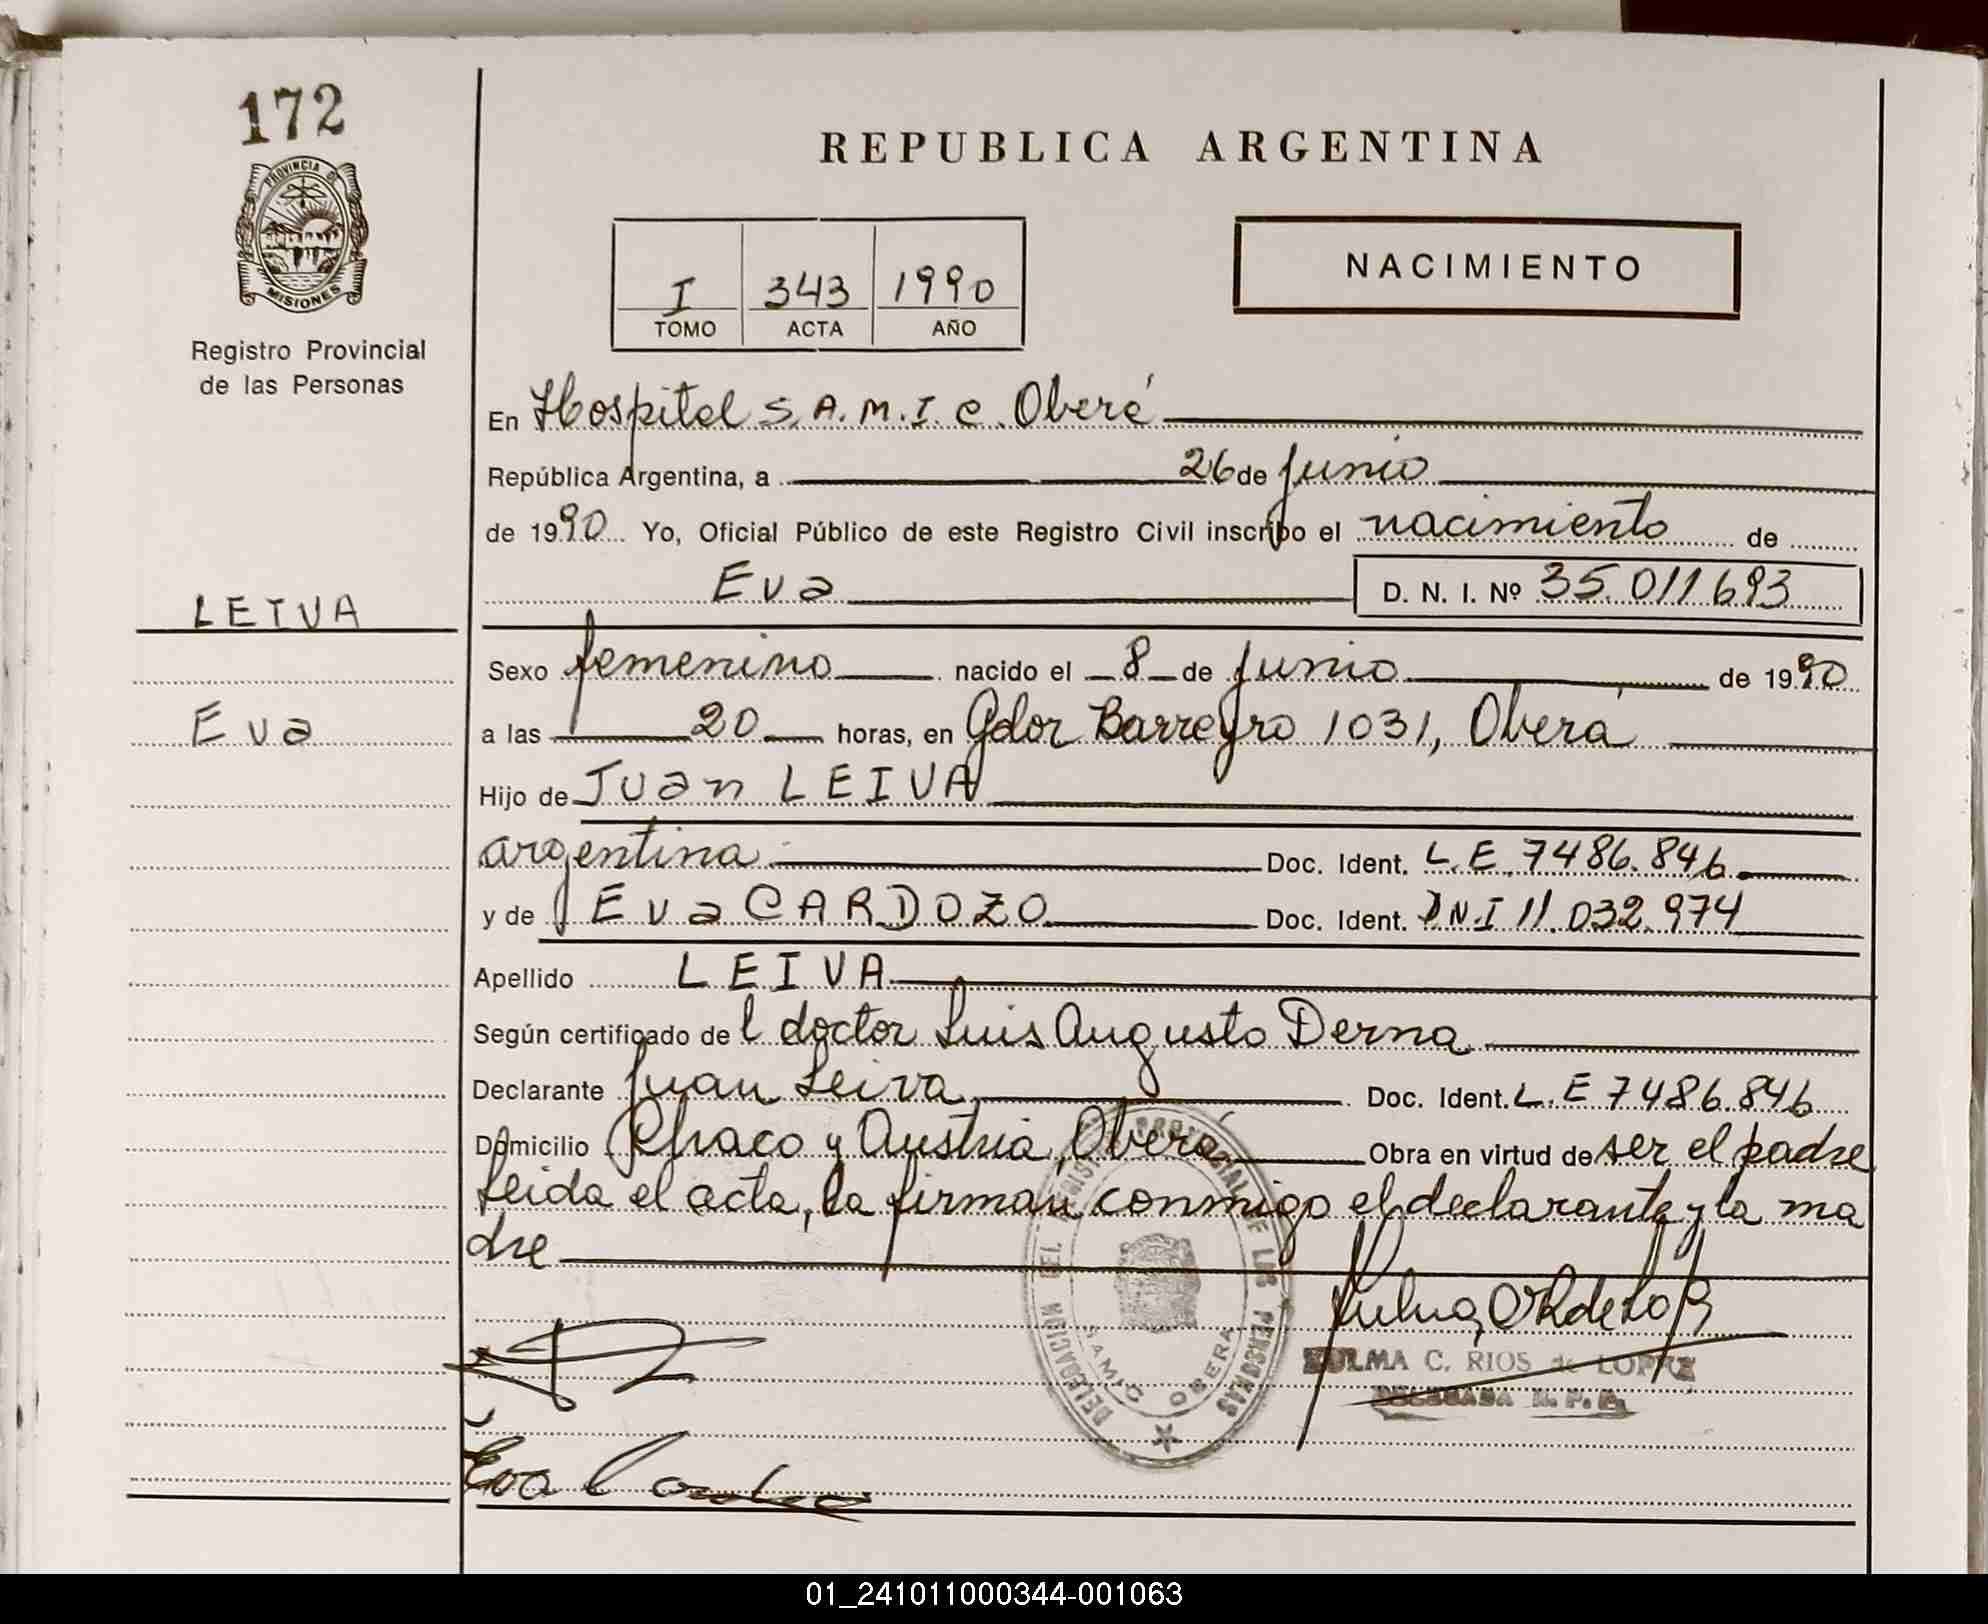 172
PROVINCIA DE
MISIONES
Registro Provincial
de las Personas
REPUBLICA ARGENTINA
NACIMIENTO
I 343 1990
TOMO ACTA AÑO
En Hospital S.A.M.I.C. Oberá
República Argentina, a 26 de junio
de 1990 Yo, Oficial Público de este Registro Civil inscribo el nacimiento de
Eva D. N. I. Nº 35.011.693
LEIVA
Eva
Sexo femenino nacido el 8 de junio de 1990
a las 20 horas, en Gdor Barreyro 1031, Oberá
Hijo de Juan LEIVA
argentina Doc. Ident. L.E. 7486.846
y de Eva CARDOZO Doc. Ident. D.N.I 11.032.974
Apellido LEIVA
Según certificado de l doctor Luis Augusto Derna
Declarante Juan Leiva Doc. Ident. L.E 7486.846
Domicilio Chaco y Austria, Oberá Obra en virtud de ser el padre
Leida el acta, la firman conmigo el declarante y la ma
dre
DELEGACION DEL REGISTRO PROVINCIAL DE LAS PERSONAS
SAMIC OBERA
ZULMA C. RIOS de LOPEZ
DELEGADA R. P. P.
Eva Cardozo
01_241011000344-001063